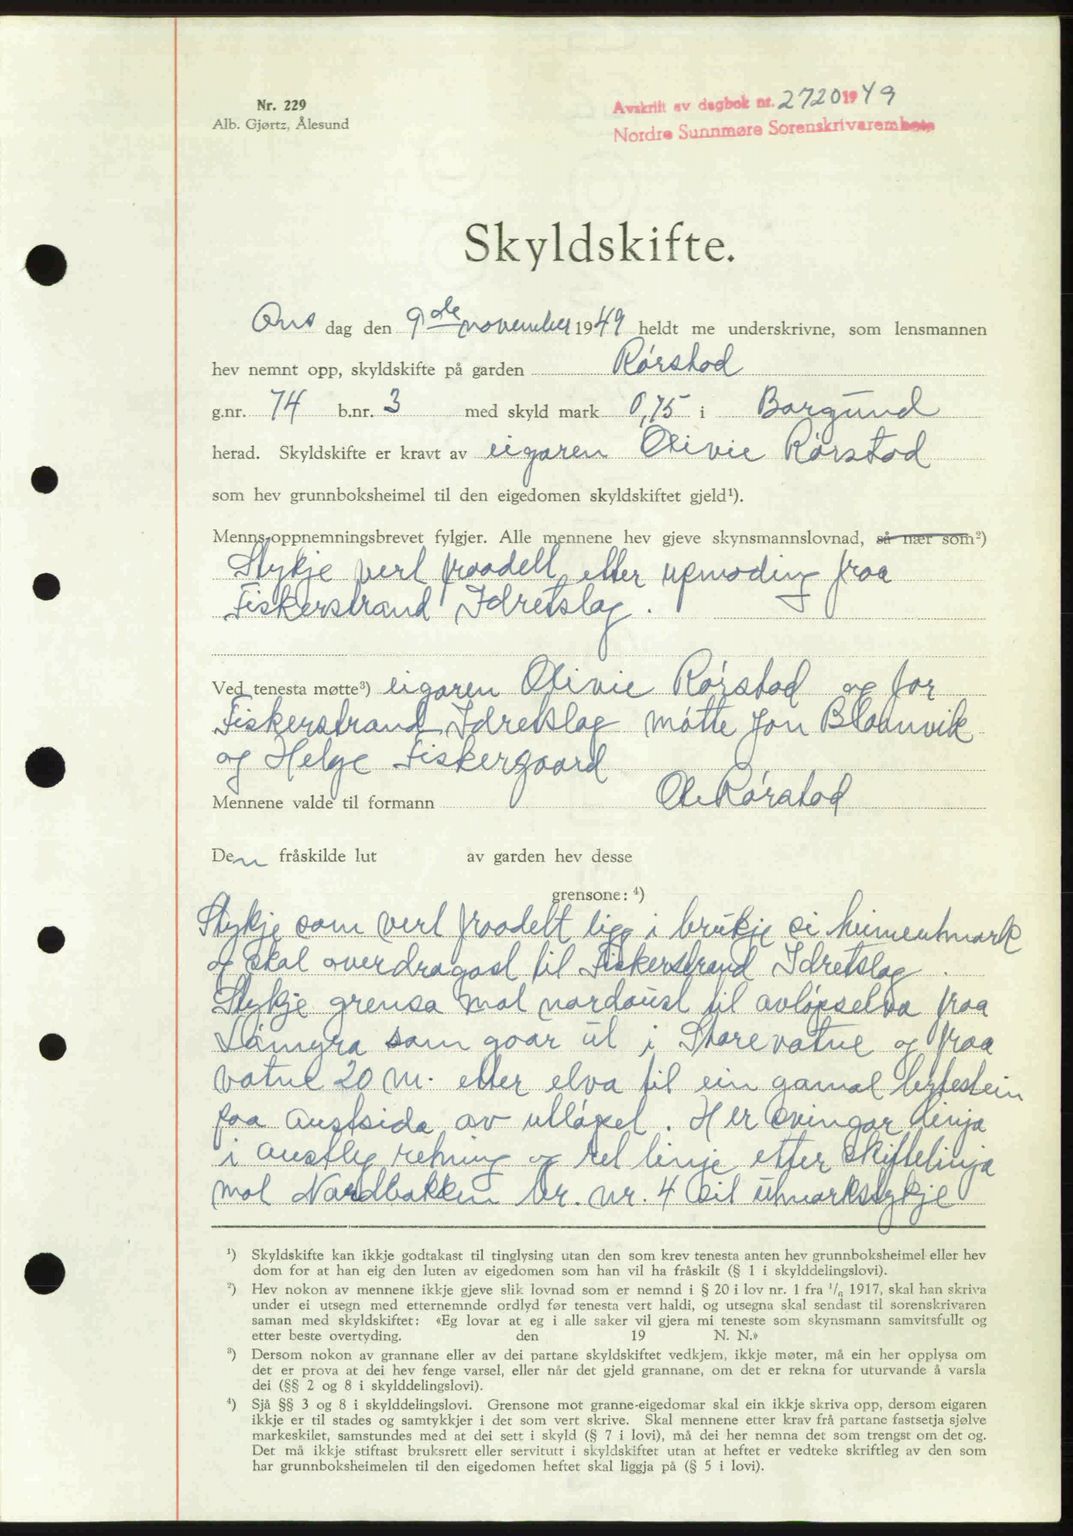 Nr. 229
Alb. Gjørtz, Ålesund
Avskrift av dagbok nr. 2720 1949
Nordre Sunnmøre Sorenskrivarembete
Skyldskifte.
Ons dag den 9de november 1949 heldt me underskrivne, som lensmannen
hev nemnt opp, skyldskifte på garden Rørstad
g.nr. 74 b.nr. 3 med skyld mark 0,75 i Borgund
herad. Skyldskifte er kravt av eigaren Olivie Rørstad
som hev grunnboksheimel til den eigedomen skyldskiftet gjeld¹).
Menns-oppnemningsbrevet fylgjer. Alle mennene hev gjeve skynsmannslovnad, så nær som²)
Stykje vert fraadelt etter upmoding fraa
Fiskerstrand Idretslag.
Ved tenesta møtte³) eigaren Olivie Rørstad og for
Fiskerstrand Idretslag møtte Jon Blaanvik
og Helge Fiskergaard
Mennene valde til formann Ole Rørstad
Den fråskilde lut av garden hev desse
grensone: ⁴)
Stykje som vert fraadelt ligg i brukje si heimeutmark
og skal overdragast til Fiskerstrand Idretslag.
Stykje grensa mot nordaust til avløpselva fraa
myra som gaar ut i Storevatne og fraa
vatne 20 m. etter elva til ein gamal bytestein
paa austsida av utløpet. Her svingar linja
i austleg retning og ret linje etter skiftelinja
mot Nordbakken br. nr. 4 sit utmarkstykje
¹) Skyldskifte kan ikkje godtakast til tinglysing utan den som krev tenesta anten hev grunnboksheimel eller hev
dom for at han eig den luten av eigedomen som han vil ha fråskilt (§ 1 i skylddelingslovi).
²) Hev nokon av mennene ikkje gjeve slik lovnad som er nemnd i § 20 i lov nr. 1 fra ¹/₆ 1917, skal han skriva
under ei utsegn med etternemnde ordlyd før tenesta vert haldi, og utsegna skal sendast til sorenskrivaren
saman med skyldskiftet: «Eg lovar at eg i alle saker vil gjera mi teneste som skynsmann samvitsfullt og
etter beste overtyding. den 19 N. N.»
³) Dersom nokon av grannane eller av dei partane skyldskiftet vedkjem, ikkje møter, må ein her opplysa om
det er prova at dei hev fenge varsel, eller når det gjeld grannane, om det er rekna for uturvande å varsla
dei (§§ 2 og 8 i skylddelingslovi).
⁴) Sjå §§ 3 og 8 i skylddelingslovi. Grensone mot granne-eigedomar skal ein ikkje skriva opp, dersom eigaren
ikkje er til stades og samtykkjer i det som vert skrive. Skal mennene etter krav frå partane fastsetja sjølve
markeskilet, samstundes med at dei sett i skyld (§ 7 i lovi), må dei her nemna det som trengst om det og.
Det må ikkje stiftast bruksrett eller servitutt i skyldskiftet utan at heftet er vedteke skriftleg av den som
har grunnboksheimelen til den eigedomen heftet skal liggja på (§ 5 i lovi).